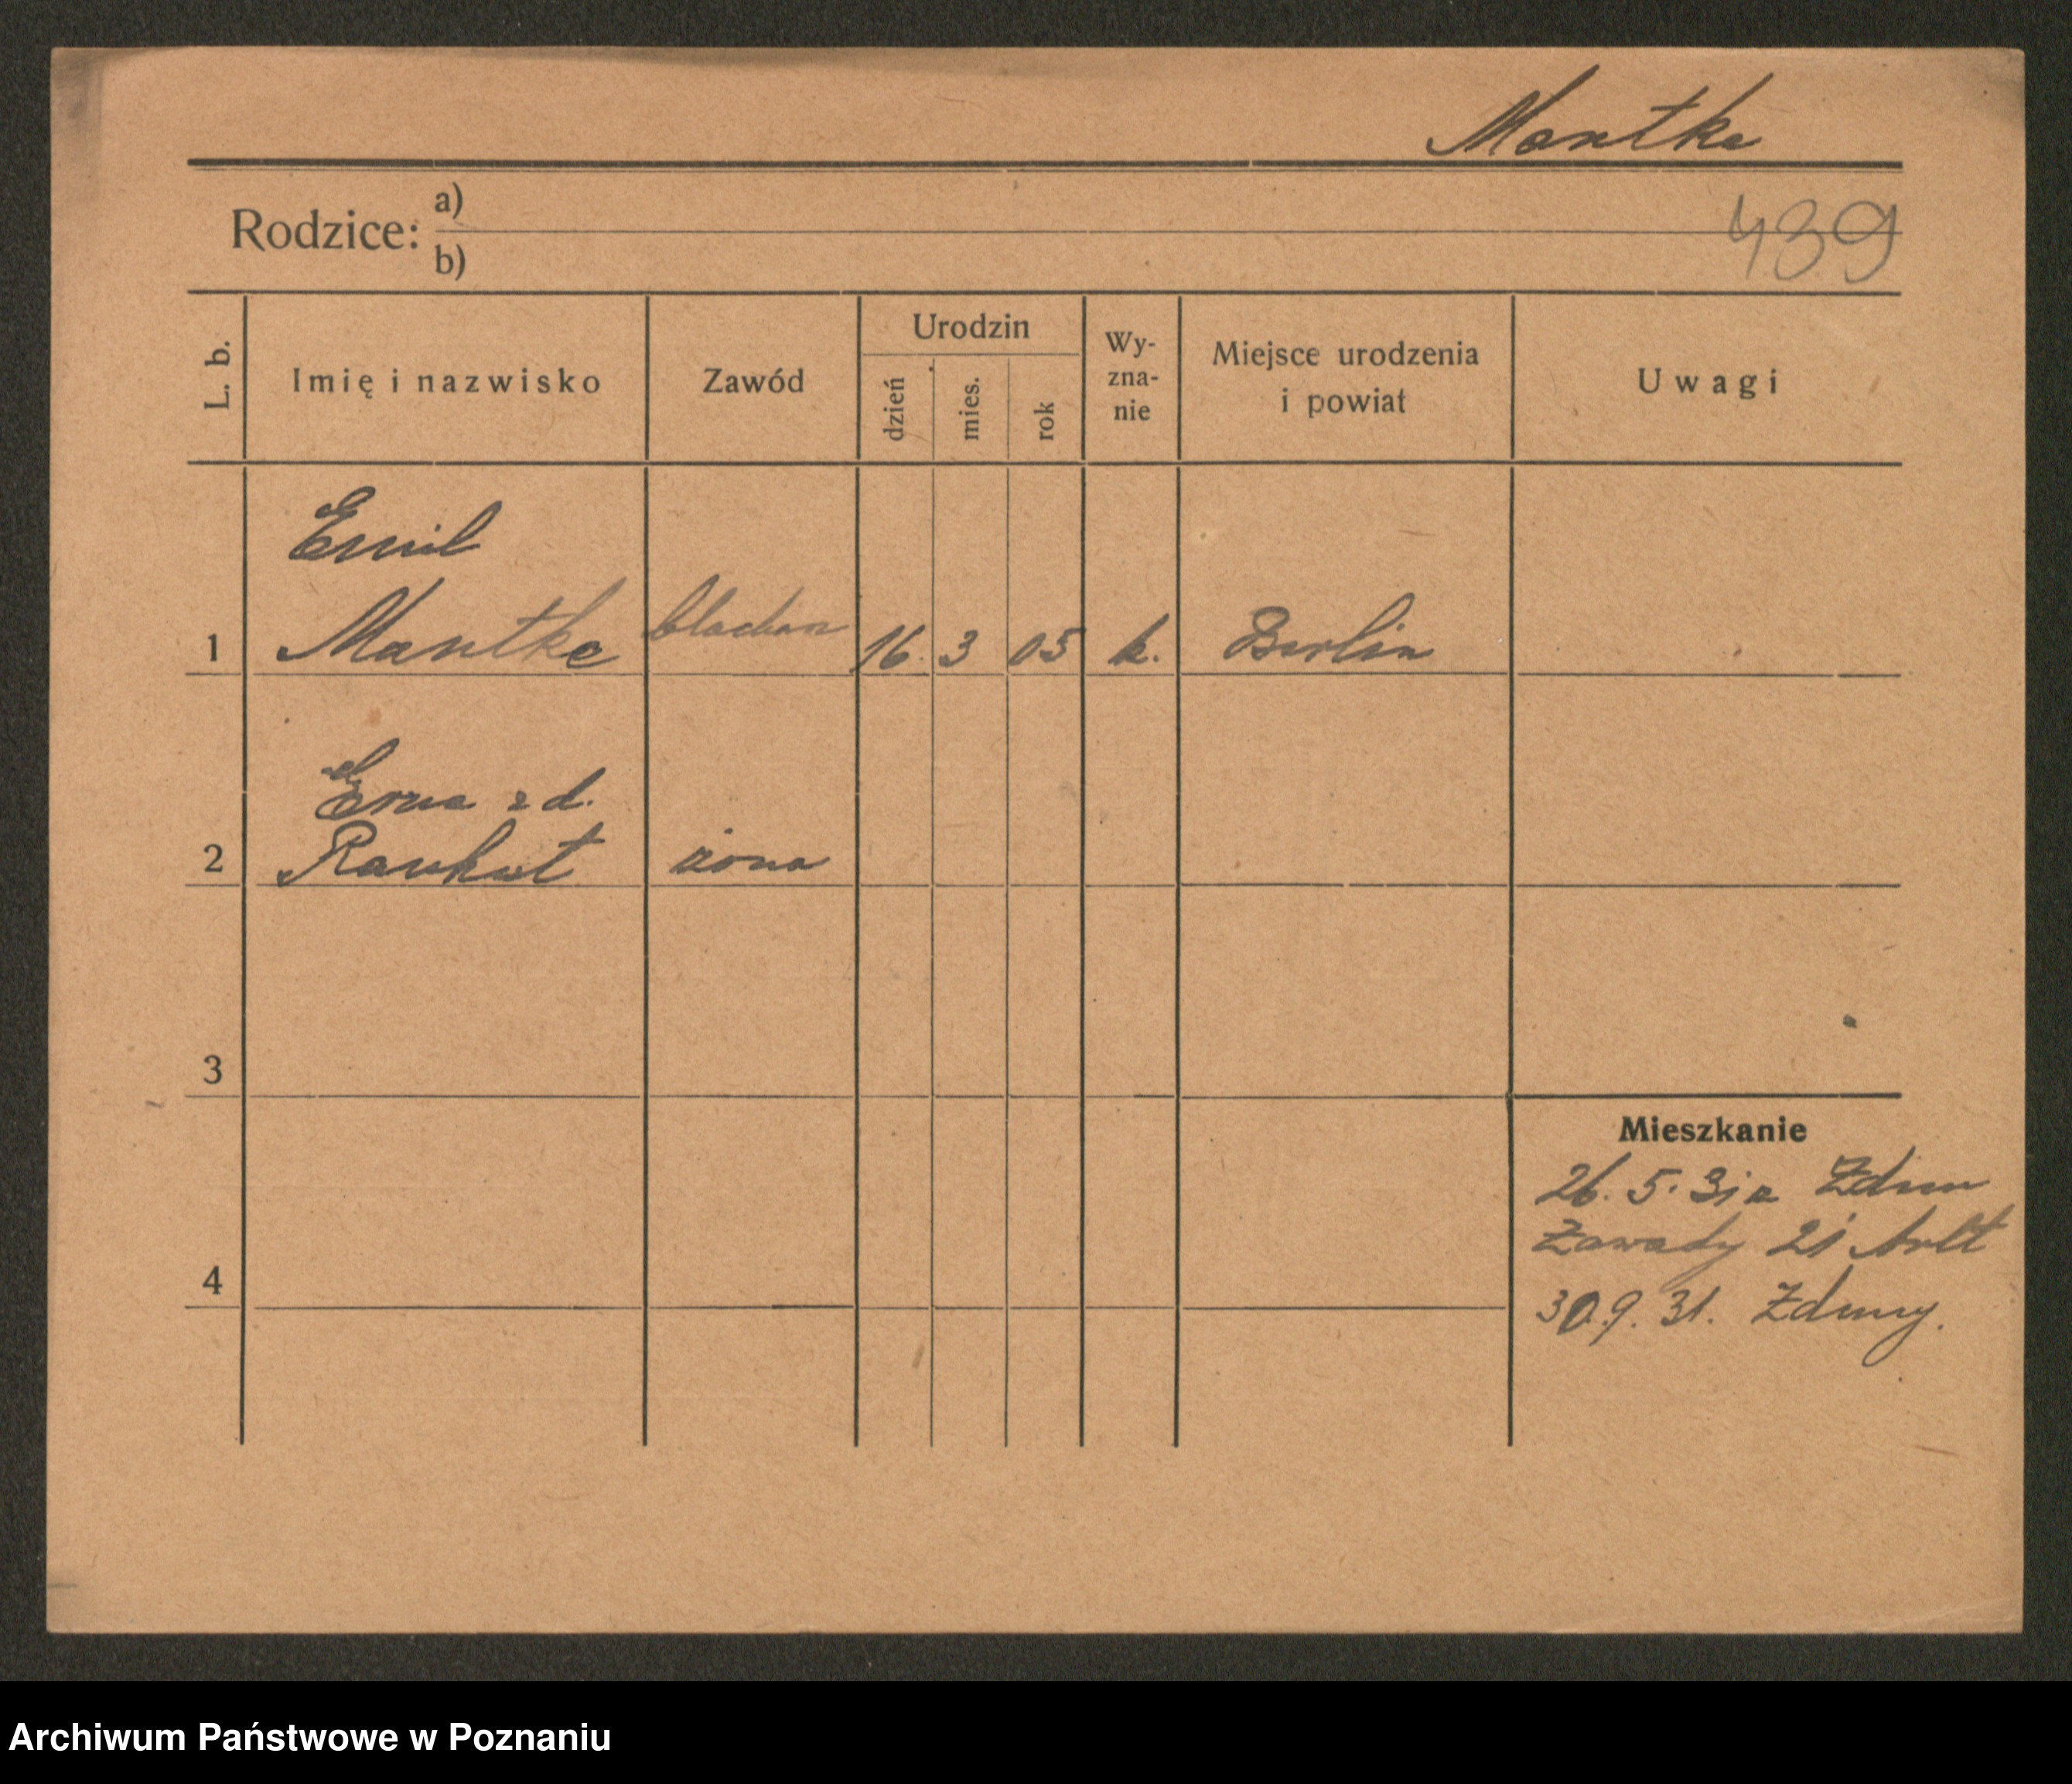 Mantke
Rodzice: a)
b)
439
L. b. Imię i nazwisko Zawód Urodzin dzień mies. rok Wy-zna-nie Miejsce urodzenia i powiat Uwagi
Emil
1 Mantke 16. 3 05 k. Berlin
Erna z d.
2 żona
3
4
Mieszkanie
26. 5. 31 z
Zawady 21
30.9. 31. Zduny.
Archiwum Państwowe w Poznaniu